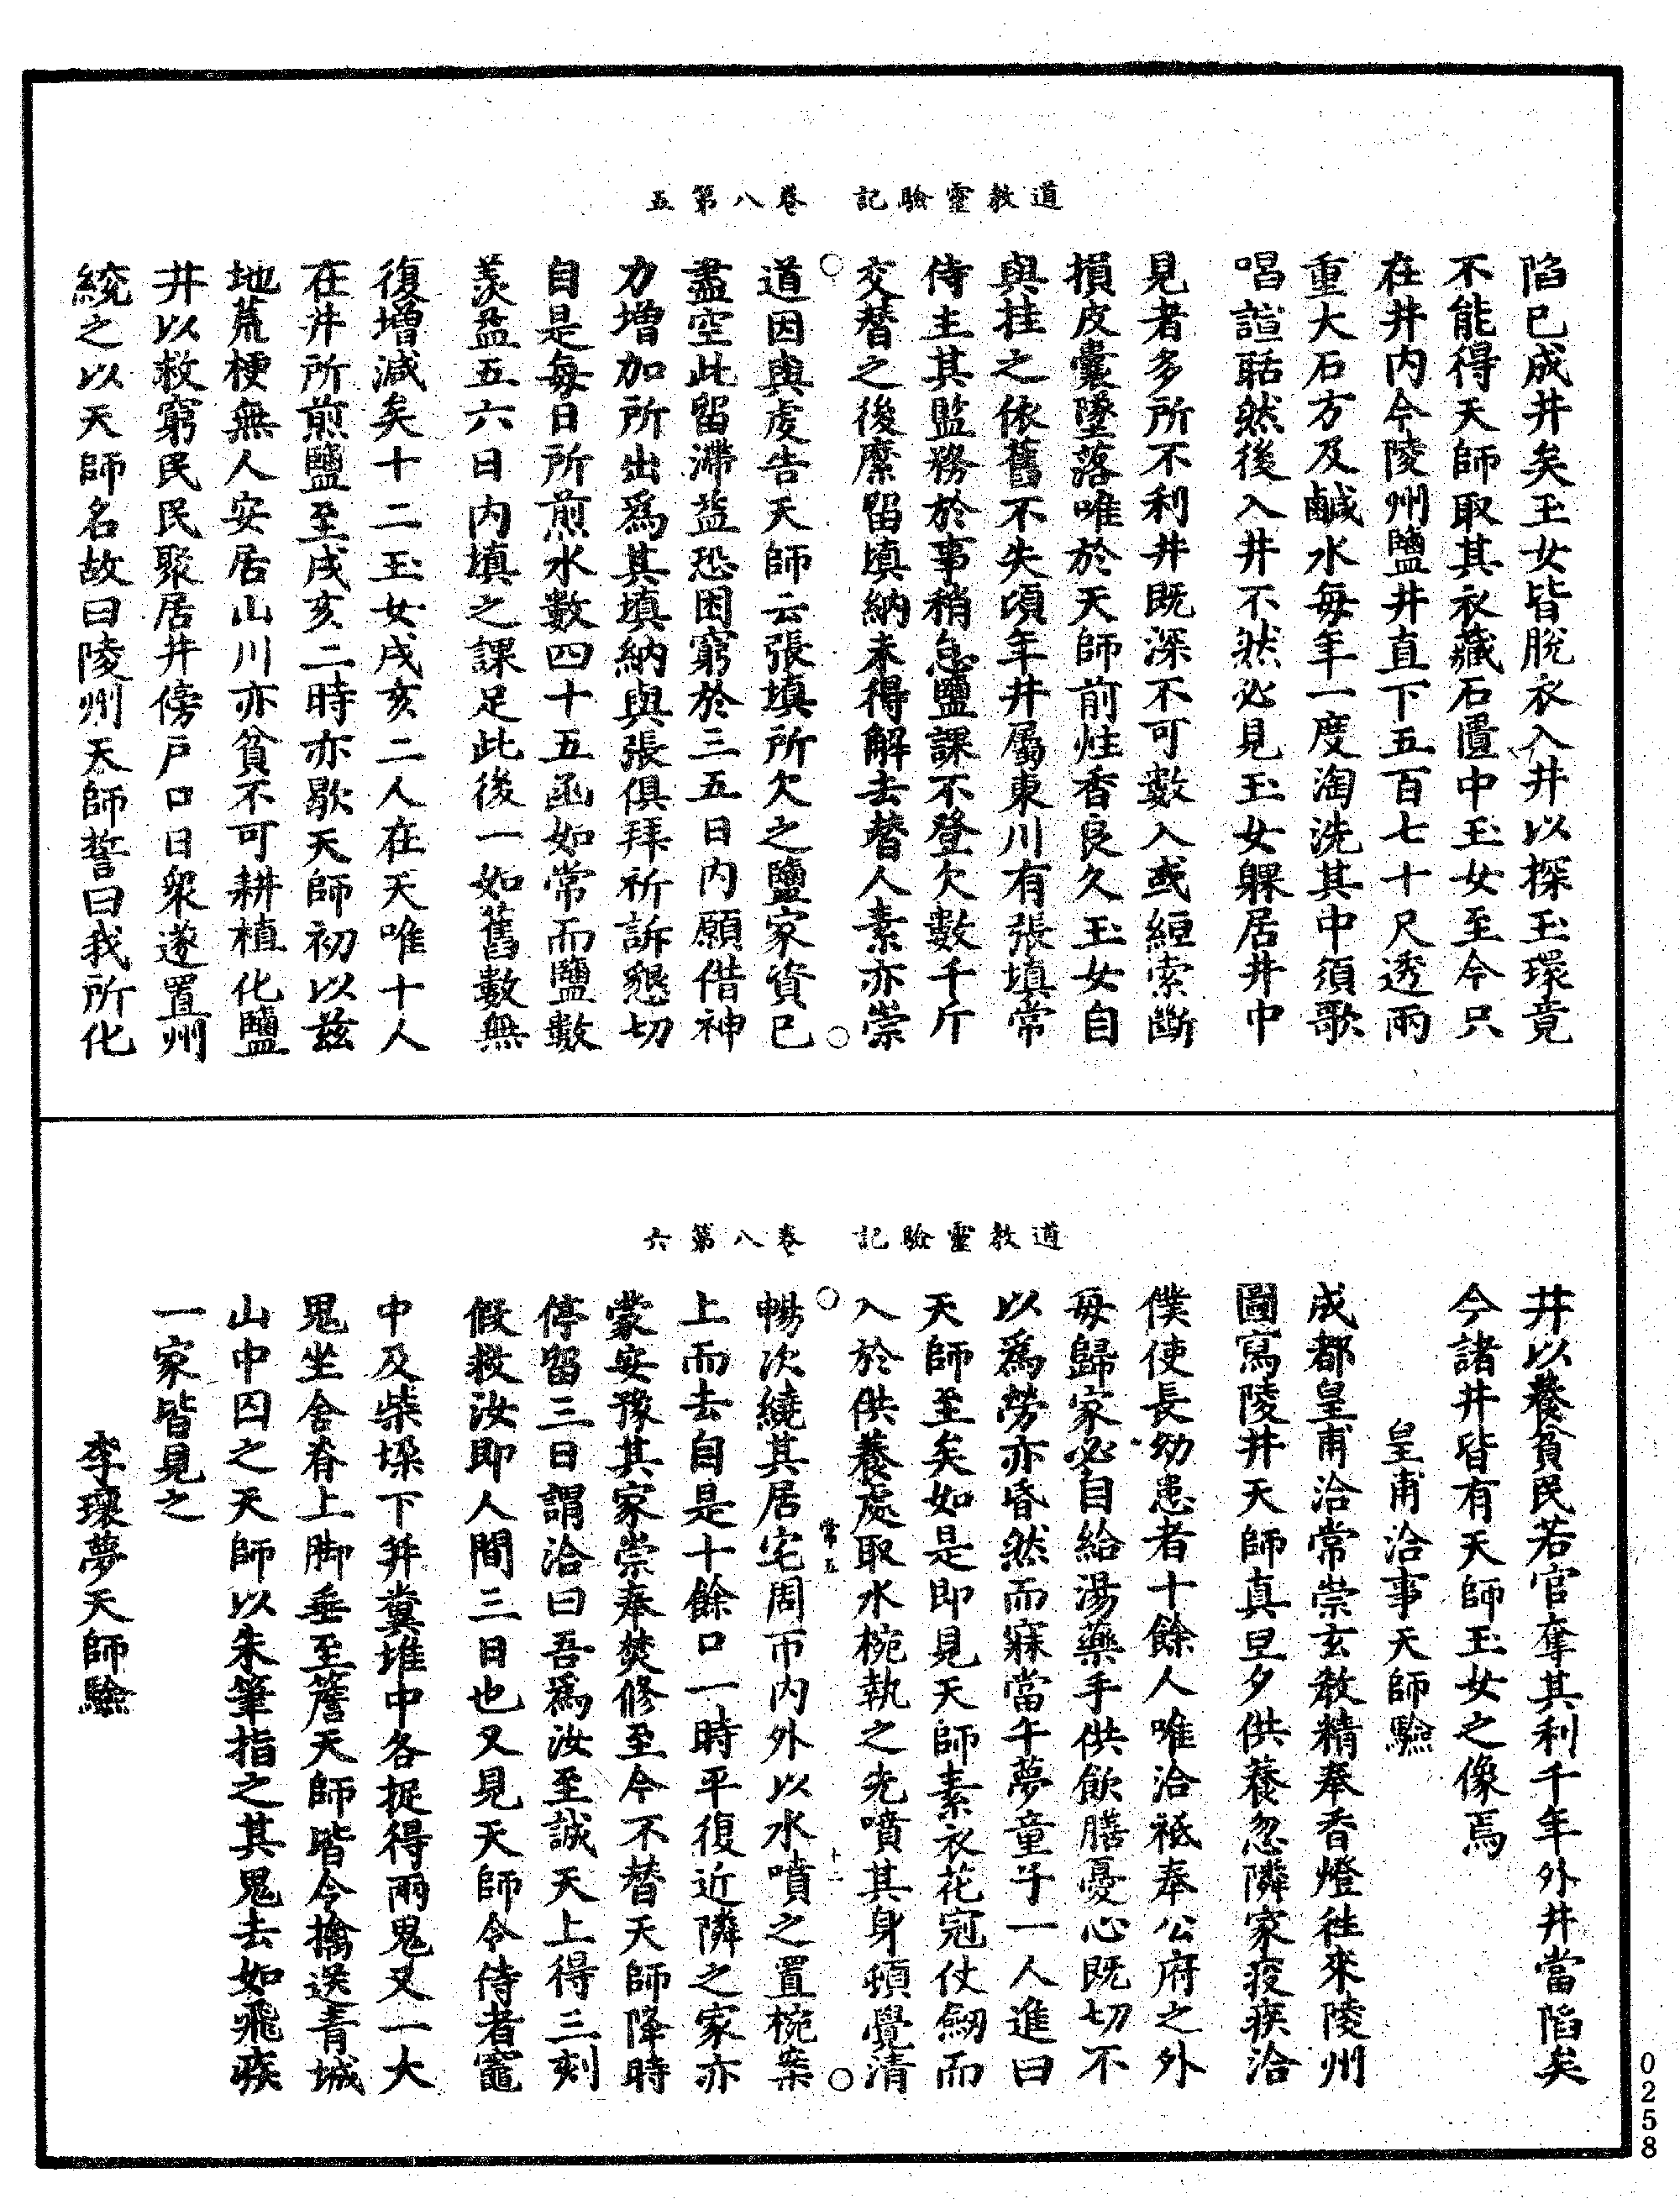 道教靈驗記　卷八第五
陷已成井矣玉女皆脫衣入井以探玉環竟
不能得天師取其衣藏石匱中玉女至今只
在井內今陵州鹽井直下五百七十尺透兩
重大石方及鹹水每年一度淘洗其中須歌
唱諠聒然後入井不然必見玉女躶居井中
見者多所不利井既深不可數入或絙索斷
損皮囊墜落唯於天師前炷香良久玉女自
與挂之依舊不失頃年井屬東川有張填常
侍主其監務於事稍怠鹽課不登欠數千斤
交替之後縻留填納未得解去替人素亦崇
道因與虔告天師云張填所欠之鹽家資已
盡空此留滯益恐困窮於三五日內願借神
力增加所出爲其填納與張俱拜祈訴懇切
自是每日所煎水數四十五函如常而鹽數
羨盈五六日內填之課足此後一如舊數無
復增減矣十二玉女戌亥二人在天唯十人
在井所煎鹽至戌亥二時亦歇天師初以茲
地荒梗無人安居山川亦貧不可耕植化鹽
井以救窮民民聚居井傍戶口日衆遂置州
統之以天師名故曰陵州天師誓曰我所化
道教靈驗記　卷八第六
井以養貧民若官奪其利千年外井當陷矣
今諸井皆有天師玉女之像焉
皇甫洽事天師驗
成都皇甫洽常崇玄教精奉香燈徃來陵州
圖寫陵井天師真旦夕供養忽隣家疫疾洽
僕使長幼患者十餘人唯洽祗奉公府之外
每歸家必自給湯藥手供飲膳憂心既切不
以爲勞亦昏然而寐當午夢童子一人進曰
天師至矣如是即見天師素衣花冠仗劒而
入於供養處取水椀執之先噴其身頓覺清
暢次繞其居宅周帀內外以水噴之置椀案
常五
十二
上而去自是十餘口一時平復近隣之家亦
蒙安豫其家崇奉焚修至今不替天師降時
停留三日謂洽曰吾爲汝至誠天上得三刻
假救汝即人間三日也又見天師令侍者竈
中及柴垛下并糞堆中各捉得兩鬼又一大
鬼坐舍脊上脚垂至簷天師皆令擒送青城
山中囚之天師以朱筆指之其鬼去如飛疾
一家皆見之
李瓌夢天師驗
0258